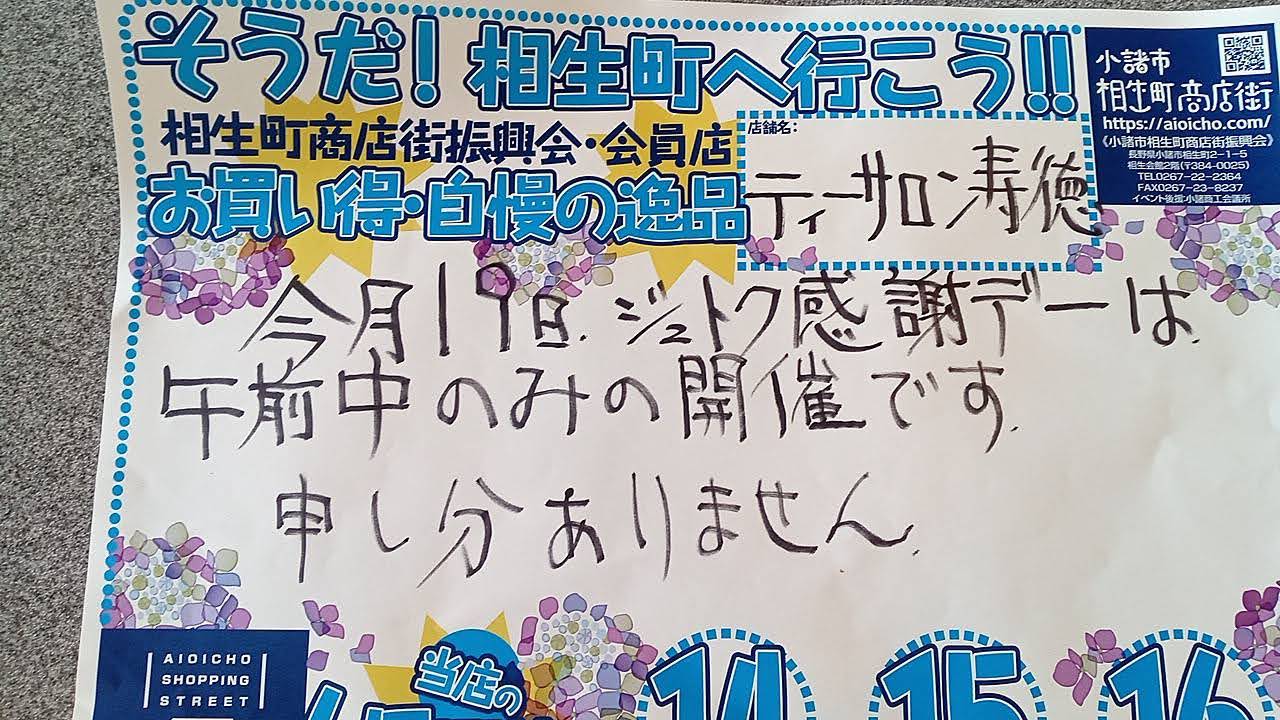 そうだ!相生町へ行こう!!
相生町商店街振興会・会員店
お買い得・自慢の逸品
店舗名:
ティーサロン寿徳
小諸市
相生町商店街
https://aioicho.com/
《小諸市相生町商店街振興会》
長野県小諸市相生町2-1-5
相生会館2階(〒384-0025)
TEL0267-22-2364
FAX0267-23-8237
イベント後援:小諸商工会議所
今月19日.ジュトク感謝デーは.
午前中のみの開催です.
申し分ありません.
AIOICHO
SHOPPING
STREET
当店の
14
15
16